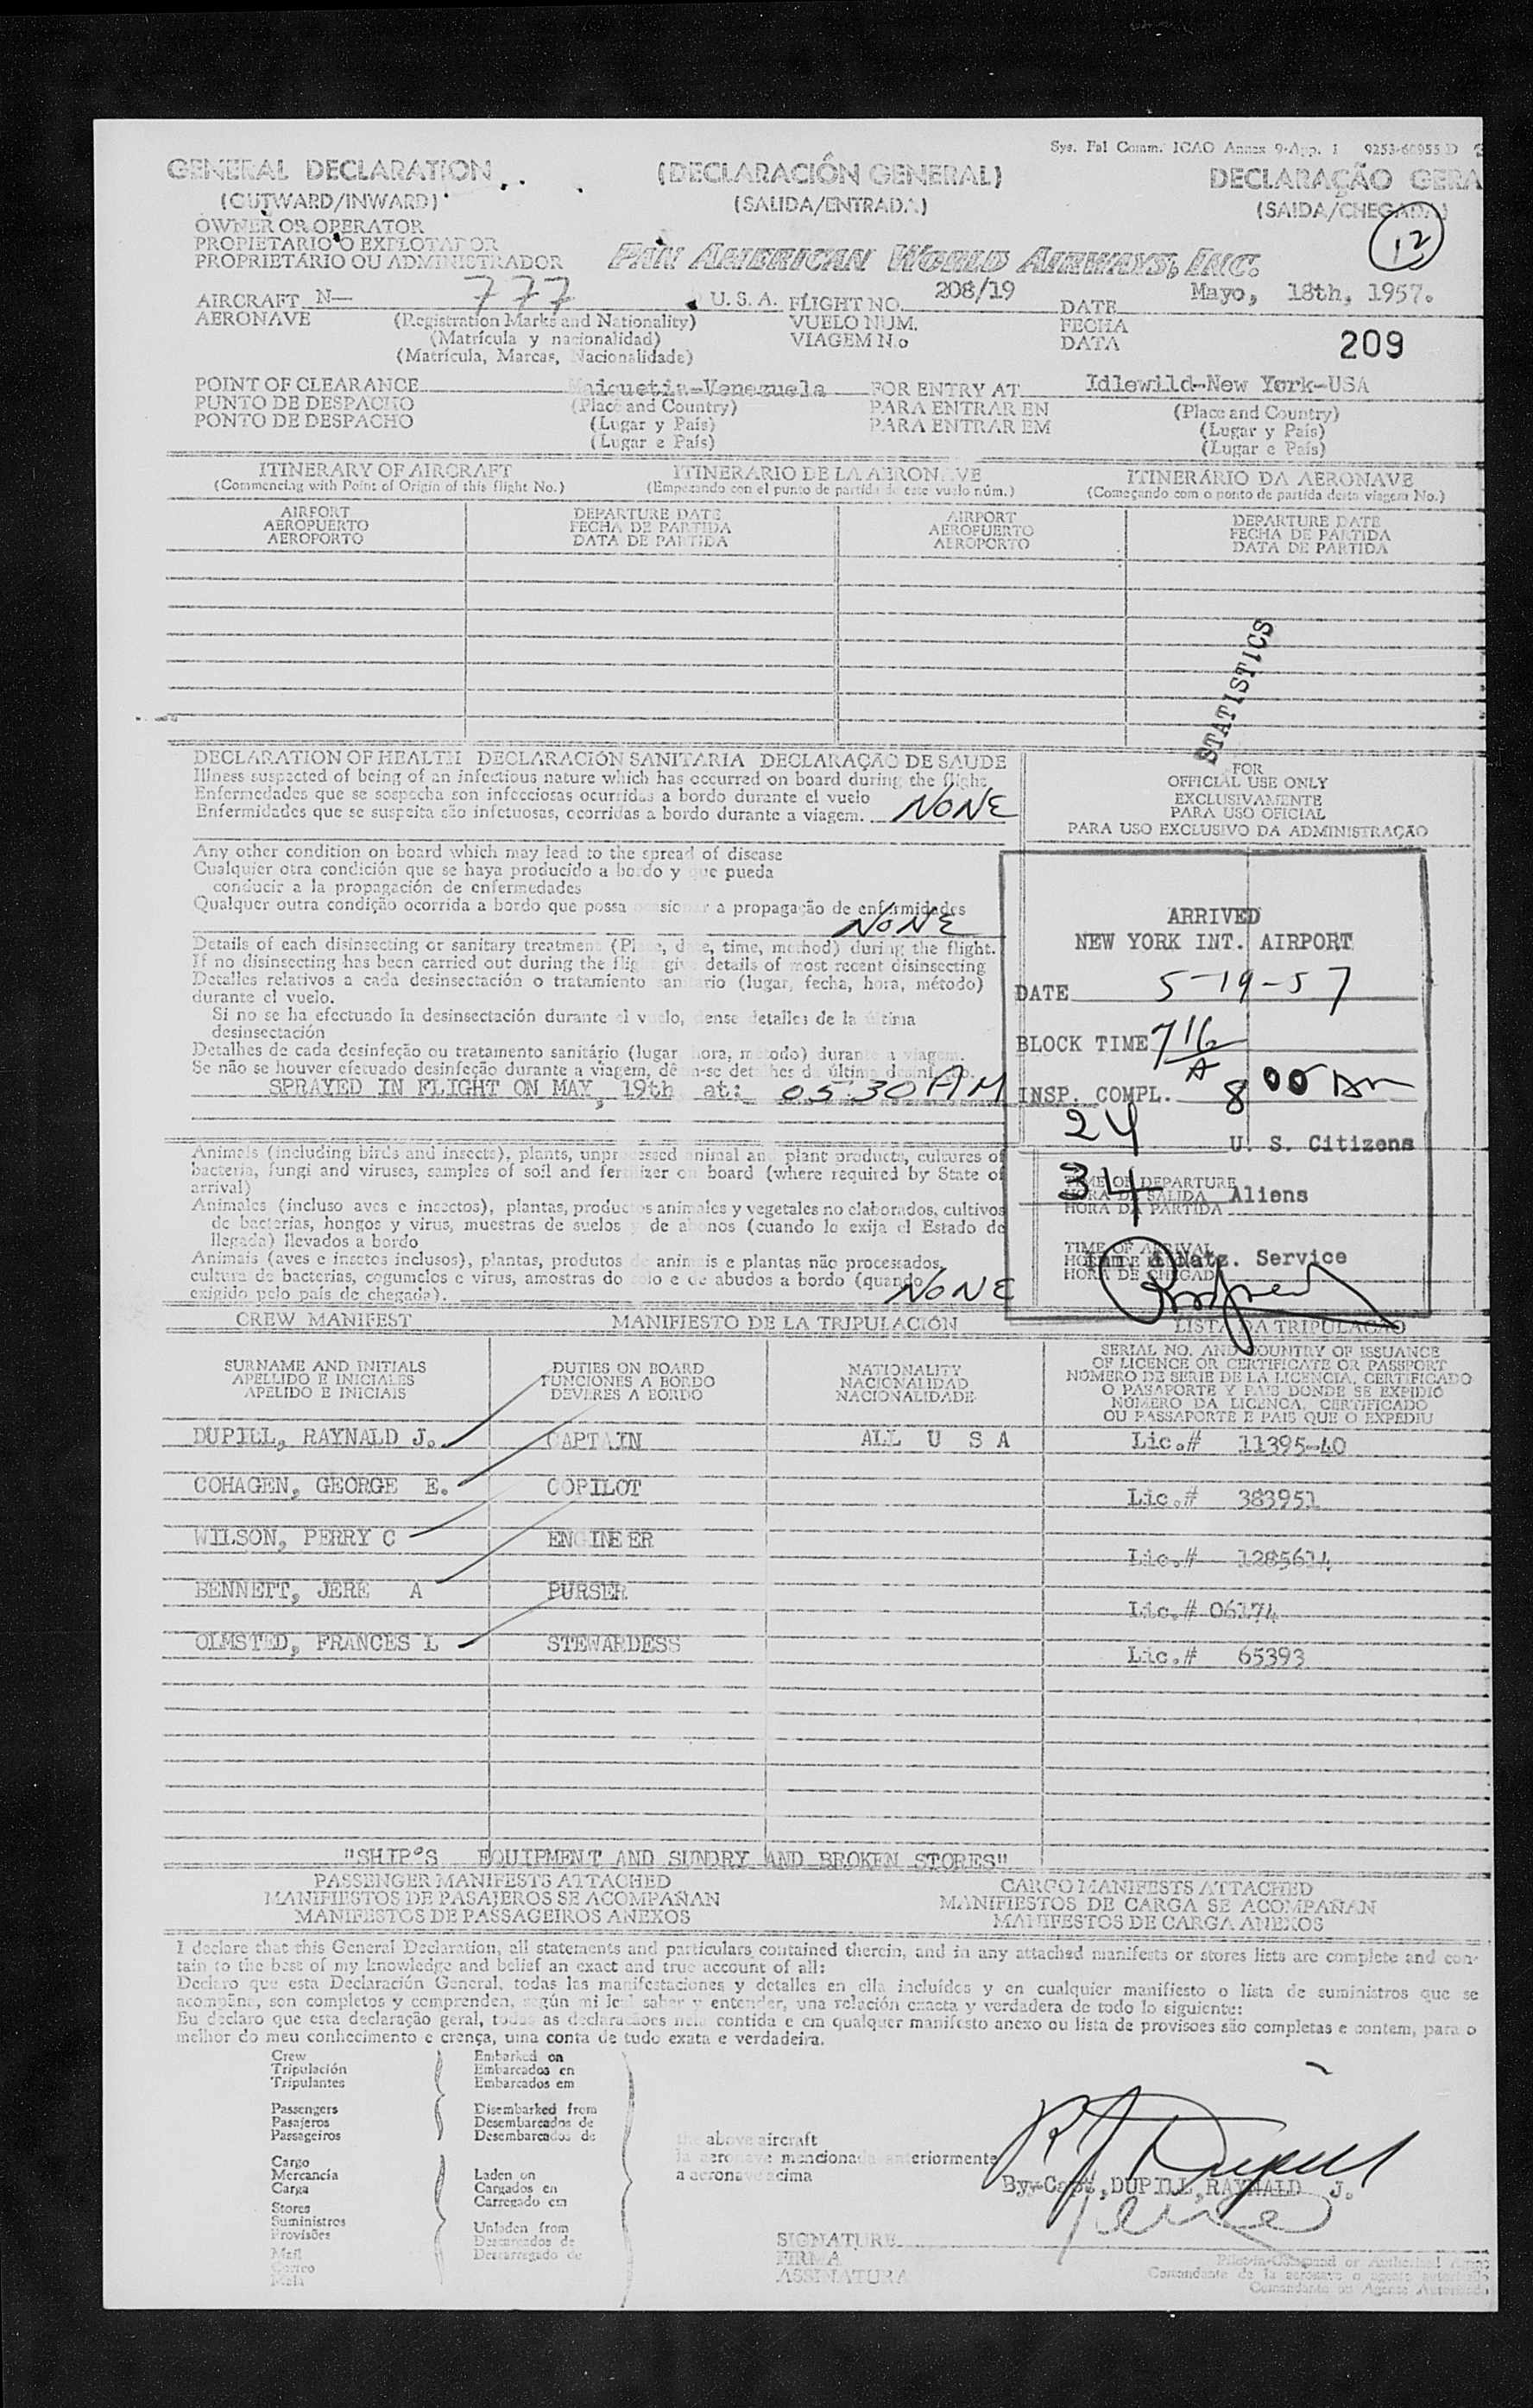 Sys. Fal Comm. ICAO Annex 9-App. 1 9253-68955 D
GENERAL DECLARATION (DECLARACIÓN GENERAL) DECLARAÇÃO GERA
(OUTWARD/INWARD) (SALIDA/ENTRADA) (SAIDA/CHEGADA)
12
OWNER OR OPERATOR
PROPIETARIO O EXPLOTADOR
PROPRIETÁRIO OU ADMINISTRADOR PAN AMERICAN WORLD AIRWAYS, INC.
AIRCRAFT N— 777 U. S. A. FLIGHT NO. 208/19 DATE Mayo, 18th, 1957.
AERONAVE (Registration Marks and Nationality) VUELO NUM. FECHA
(Matrícula y nacionalidad) VIAGEM No DATA 209
(Matrícula, Marcas, Nacionalidade)
POINT OF CLEARANCE Maiquetia-Venezuela FOR ENTRY AT Idlewild-New York-USA
PUNTO DE DESPACHO (Place and Country) PARA ENTRAR EN (Place and Country)
PONTO DE DESPACHO (Lugar y País) PARA ENTRAR EM (Lugar y País)
(Lugar e País) (Lugar e País)
ITINERARY OF AIRCRAFT ITINERARIO DE LA AERONAVE ITINERÁRIO DA AERONAVE
(Commencing with Point of Origin of this flight No.) (Empezando con el punto de partida de este vuelo núm.) (Começando com o ponto de partida desta viagem No.)
AIRPORT DEPARTURE DATE AIRPORT DEPARTURE DATE
AEROPUERTO FECHA DE PARTIDA AEROPUERTO FECHA DE PARTIDA
AEROPORTO DATA DE PARTIDA AEROPORTO DATA DE PARTIDA
STATISTICS
DECLARATION OF HEALTH DECLARACIÓN SANITARIA DECLARAÇÃO DE SAUDE
Illness suspected of being of an infectious nature which has occurred on board during the flight
Enfermedades que se sospecha son infecciosas ocurridas a bordo durante el vuelo
Enfermidades que se suspeita são infetuosas, ocorridas a bordo durante a viagem. NONE
FOR
OFFICIAL USE ONLY
EXCLUSIVAMENTE
PARA USO OFICIAL
PARA USO EXCLUSIVO DA ADMINISTRAÇÃO
Any other condition on board which may lead to the spread of disease
Cualquier otra condición que se haya producido a bordo y que pueda
conducir a la propagación de enfermedades
Qualquer outra condição ocorrida a bordo que possa ocasionar a propagação de enfermidades
NONE
Details of each disinsecting or sanitary treatment (Place, date, time, method) during the flight.
If no disinsecting has been carried out during the flight give details of most recent disinsecting
Detalles relativos a cada desinsectación o tratamiento sanitario (lugar, fecha, hora, método)
durante el vuelo.
Si no se ha efectuado la desinsectación durante el vuelo, dense detalles de la última
desinsectación
Detalhes de cada desinfeção ou tratamento sanitário (lugar, hora, metodo) durante a viagem.
Se não se houver efetuado desinfeção durante a viagem, dêem-se detalhes da última desinfeção.
SPRAYED IN FLIGHT ON MAY, 19th at: 05:30 AM
ARRIVED
NEW YORK INT. AIRPORT
DATE 5-19-57
BLOCK TIME 716 A
INSP. COMPL. 8 00 AM
24 U. S. Citizens
34 Aliens
Imm. & Natz. Service
TIME OF DEPARTURE
HORA DE SALIDA
HORA DA PARTIDA
TIME OF ARRIVAL
HORA DE CHEGADA
Animals (including birds and insects), plants, unprocessed animal and plant products, cultures of
bacteria, fungi and viruses, samples of soil and fertilizer on board (where required by State of
arrival)
Animales (incluso aves e insectos), plantas, productos animales y vegetales no elaborados, cultivos
de bacterias, hongos y virus, muestras de suelos y de abonos (cuando lo exija el Estado de
llegada) llevados a bordo
Animais (aves e insetos inclusos), plantas, produtos de animais e plantas não processados,
cultura de bacterias, cogumelos e virus, amostras do solo e de abudos a bordo (quando
exigido pelo país de chegada). NONE
CREW MANIFEST MANIFIESTO DE LA TRIPULACIÓN LISTA DA TRIPULAÇÃO
SURNAME AND INITIALS DUTIES ON BOARD NATIONALITY SERIAL NO. AND COUNTRY OF ISSUANCE
APELLIDO E INICIALES FUNCIONES A BORDO NACIONALIDAD OF LICENCE OR CERTIFICATE OR PASSPORT
APELIDO E INICIAIS DEVERES A BORDO NACIONALIDADE NÚMERO DE SERIE DE LA LICENCIA, CERTIFICADO
O PASAPORTE Y PAIS DONDE SE EXPIDIÓ
NÚMERO DA LICENCA, CERTIFICADO
OU PASSAPORTE E PAIS QUE O EXPEDIU
DUPILL, RAYNALD J. CAPTAIN ALL U S A Lic.# 11395-40
COHAGEN, GEORGE E. COPILOT Lic.# 383951
WILSON, PERRY C ENGINEER Lic.# 1285614
BENNETT, JERE A PURSER Lic.# 06174
OLMSTED, FRANCES L STEWARDESS Lic.# 65393
"SHIP'S EQUIPMENT AND SUNDRY AND BROKEN STORES"
PASSENGER MANIFESTS ATTACHED CARGO MANIFESTS ATTACHED
MANIFIESTOS DE PASAJEROS SE ACOMPAÑAN MANIFIESTOS DE CARGA SE ACOMPAÑAN
MANIFESTOS DE PASSAGEIROS ANEXOS MANIFESTOS DE CARGA ANEXOS
I declare that this General Declaration, all statements and particulars contained therein, and in any attached manifests or stores lists are complete and con-
tain to the best of my knowledge and belief an exact and true account of all:
Declaro que esta Declaración General, todas las manifestaciones y detalles en ella incluídes y en cualquier manifiesto o lista de suministros que se
acompäna, son completos y comprenden, según mi leal saber y entender, una relación exacta y verdadera de todo lo siguiente:
Eu declaro que esta declaração geral, todas as declaracãoes nela contida e em qualquer manifesto anexo ou lista de provisoes são completas e contem, para o
melhor do meu conhecimento e crença, uma conta de tudo exata e verdadeira.
Crew Embarked on
Tripulación Embarcados en
Tripulantes Embarcados em
Passengers Disembarked from
Pasajeros Desembarcados de
Passageiros Desembarcados de
the above aircraft
la aeronave mencionada anteriormente
a aeronave acima
Cargo
Mercancía Laden on
Carga Cargados en
Stores Carregado em
Suministros
Provisões Unladen from
Mail Descargados de
Correo Descarregado de
Mala
R J Dupill
By-Capt, DUPILL, RAYNALD J.
SIGNATURE
FIRMA
ASSINATURA
Pilot-in-Command or Authorized Agent
Comandante de la aeronave o agente autorizado
Comandante ou Agente Autorizado